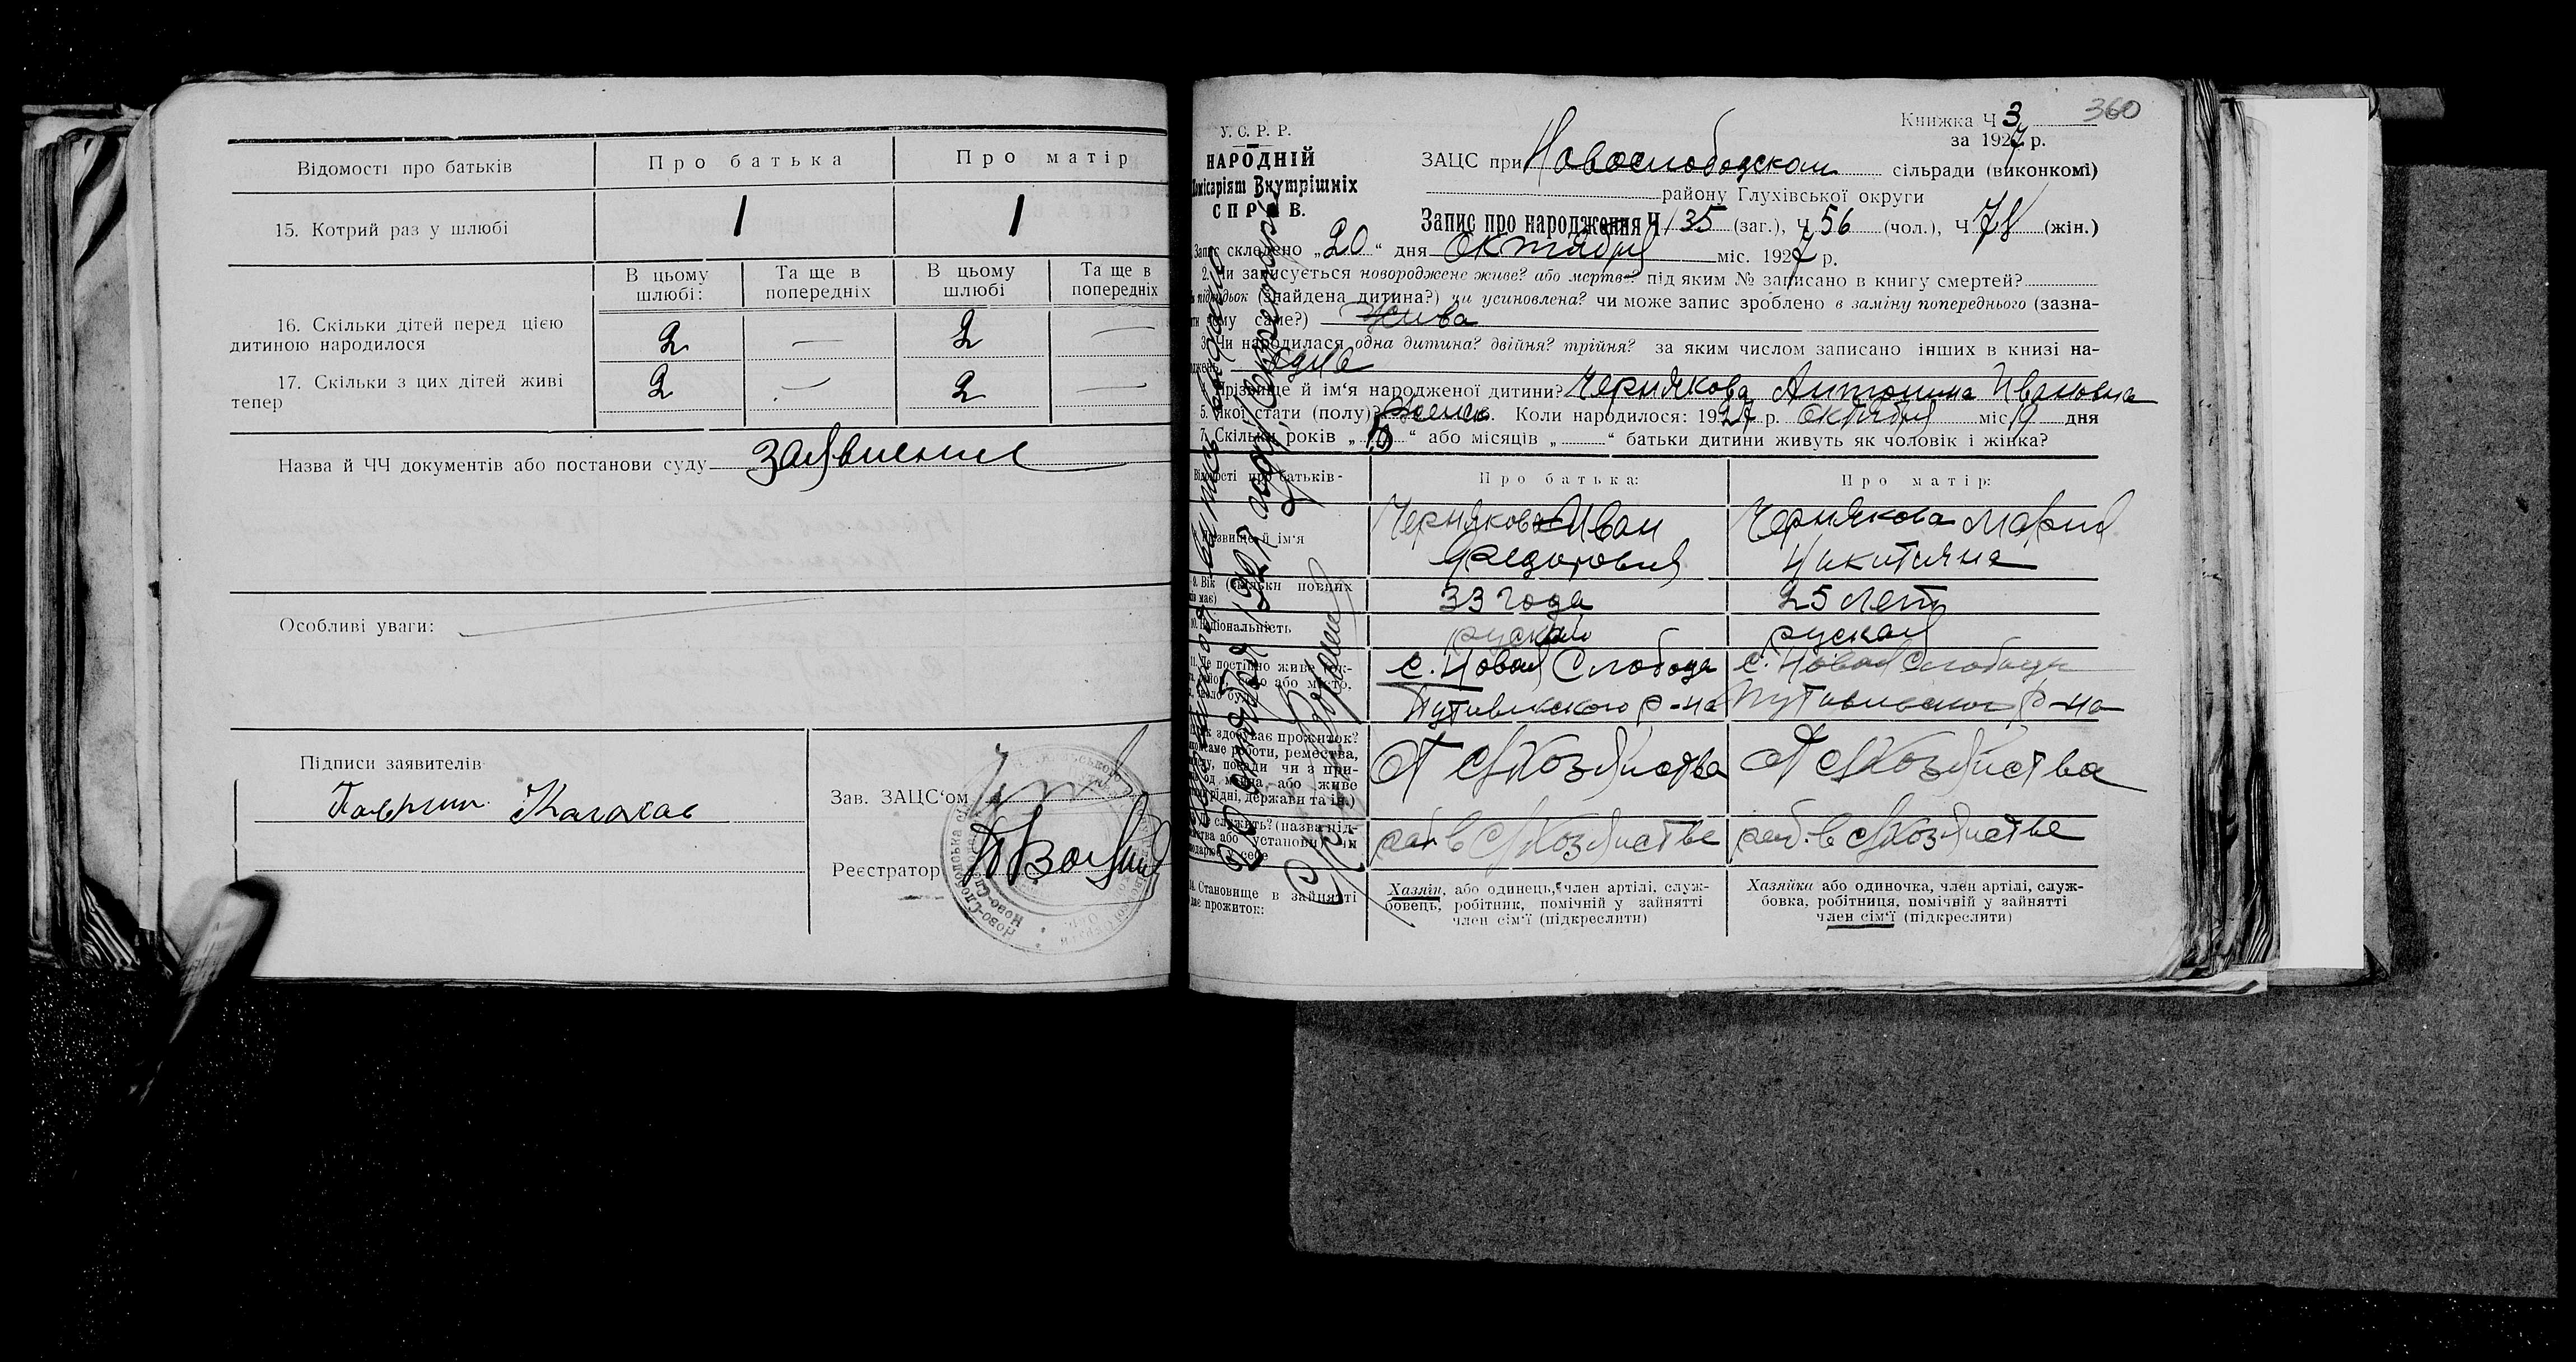 Відомості про батьків
Про батька
Про матір
15. Котрий раз у шлюбі
1
1
В цьому шлюбі:
Та ще в попередніх
В цьому шлюбі
Та ще в попередніх
16. Скільки дітей перед цією
дитиною народилося
2 — 2 —
17. Скільки з цих дітей живі
тепер
2 — 2 —
Назва й ЧЧ документів або постанови суду заявление
Особливі уваги:
Підписи заявителів
Зав. ЗАЦС‘ом
Реєстратор
360
Книжка Ч 3
за 1927 р.
У. С. Р. Р.
НАРОДНІЙ
Комісаріят Внутрішніх
СПРАВ.
ЗАЦС при Новослободском сільради (виконкомі)
району Глухівської округи
Запис про народження Ч 135 (заг.), Ч 56 (чол.), Ч 78 (жін.)
Запис складено „20“ дня Октября міс. 1927 р.
2. Чи записується новороджене живе? або мертве? під яким № записано в книгу смертей?
підкидьок (знайдена дитина?) чи усиновлена? чи може запис зроблено в заміну попереднього (зазна-
чому саме?) Жива
3. Чи народилася одна дитина? двійня? трійня? за яким числом записано інших в книзі на-
одна
Прізвище й ім‘я народженої дитини? Чернякова Антонина Ивановна
5. Якої стати (полу)? женск. Коли народилося: 1927 р. Октября міс 19 дня
7. Скільки років „ “ або місяців „ “ батьки дитини живуть як чоловік і жінка?
Відомості про батьків
Про батька:
Про матір:
Прізвище й ім‘я
Черняков Иван
Федорович
Чернякова Мария
Никитична
9. Вік (скільки повних
має)
33 года
25 лет
10. Національність
руский
руская
11. Де постійно живе
район, село або місто,
с. Новая Слобода
Путивльского р-на
с. Новая Слобода
Путивльского р-на
здобуває прожиток?
саме роботи, ремества,
посади чи з при-
або живе
рідні, держави та ін.)
От с/хозяйства
От с/хозяйства
служить? (назва під-
або установи) чи
себе
раб. в с/хозяйстве
раб. в с/хозяйстве
14. Становище в зайнятті
дає прожиток:
Хазяїн, або одинець, член артілі, служ-
бовець, робітник, помічній у зайнятті
член сім‘ї (підкреслити)
Хазяйка або одиночка, член артілі, служ-
бовка, робітниця, помічній у зайнятті
член сім‘ї (підкреслити)